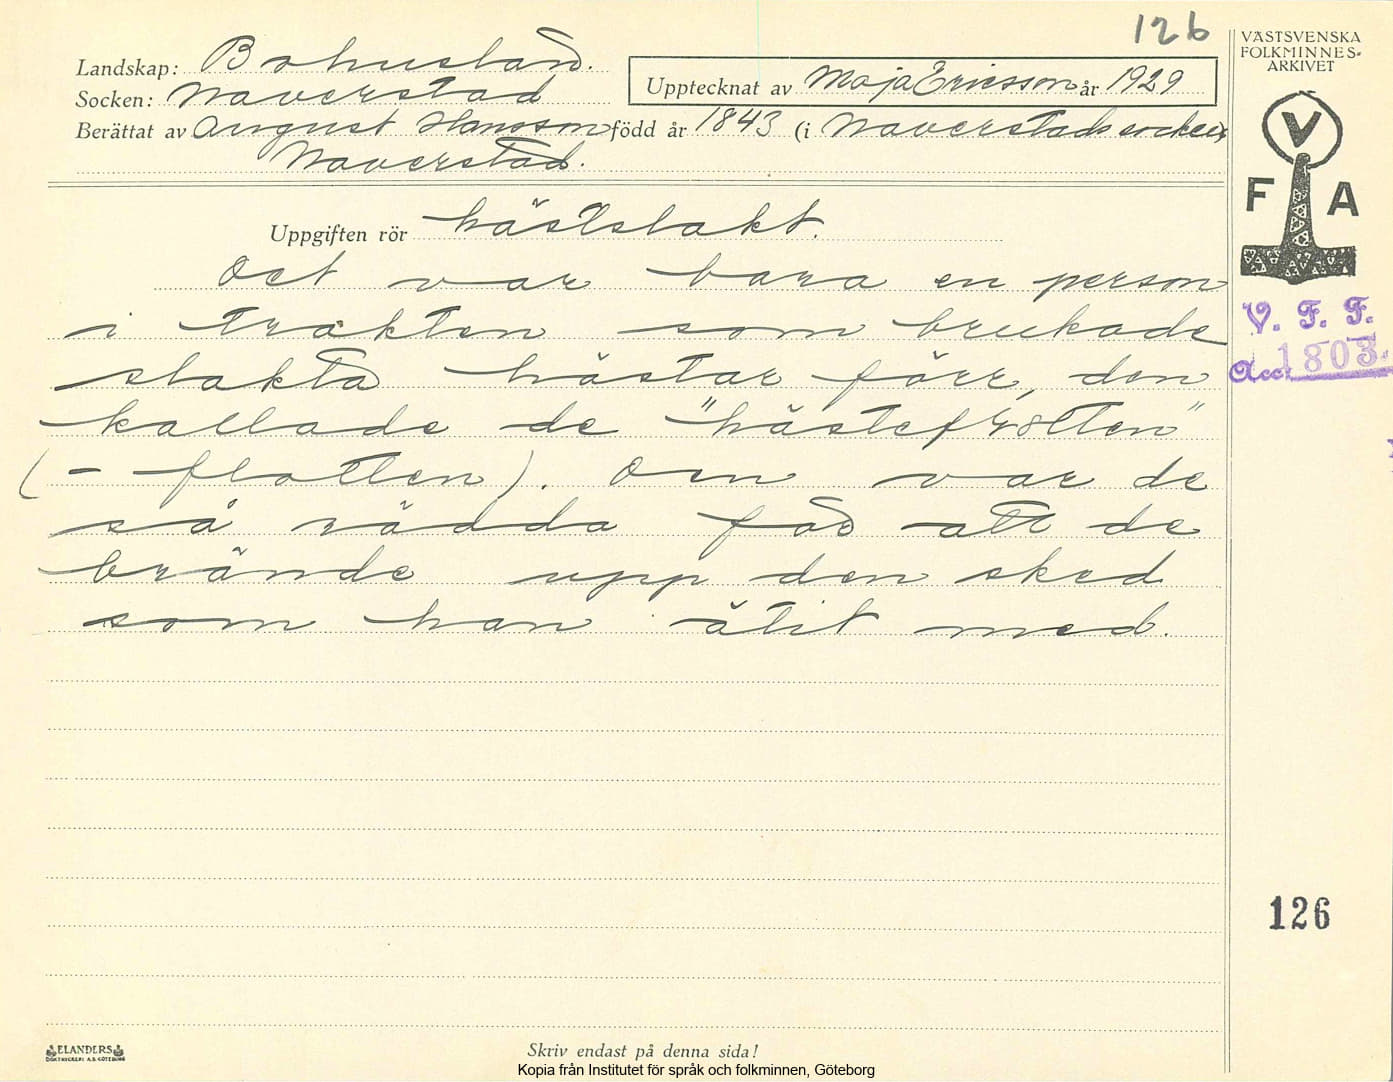 126
VÄSTSVENSKA
FOLKMINNES-
ARKIVET
Landskap: Bohuslän.
Socken: Naverstad
Upptecknat av Maja Ericsson år 1929
Berättat av August Hansson född år 1843 (i Naverstads socken,
Naverstad.
V
F A
Uppgiften rör hästslakt.
Det var bara en person
i trakten som brukade
slakta hästar förr, den
kallade de "hästefrötten"
(- flotten). Den var de
så rädda för att de
brände upp den sked
som han ätit med.
V. F. F.
Acc. 1803.
126
ELANDERS
BOKTRYCKERI A.B. GÖTEBORG
Skriv endast på denna sida!
Kopia från Institutet för språk och folkminnen, Göteborg